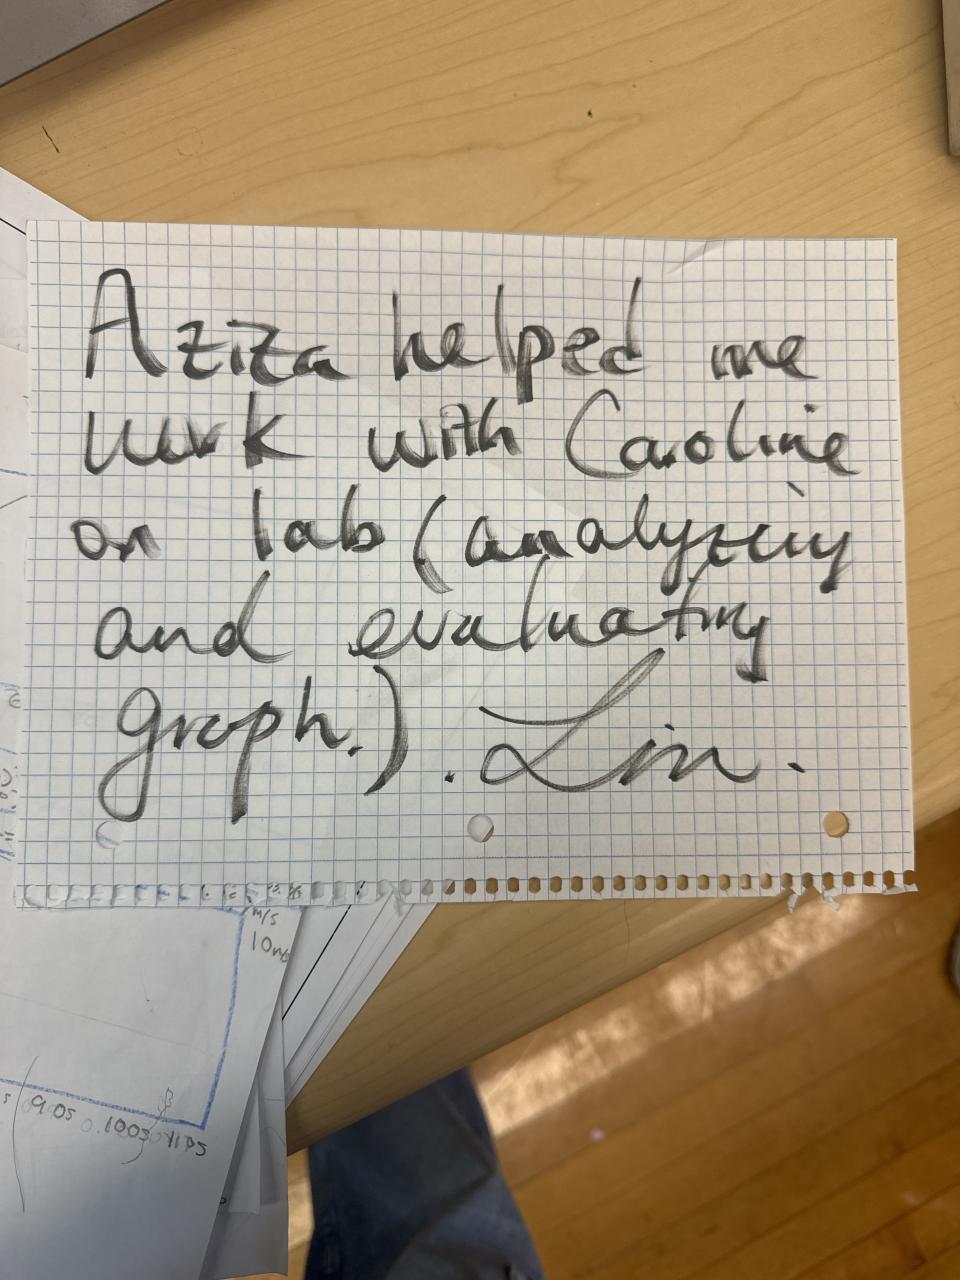 Aziza helped me
work with Caroline
on lab (analyzing
and evaluating
graph.). Lin.
m/s
90s
100s